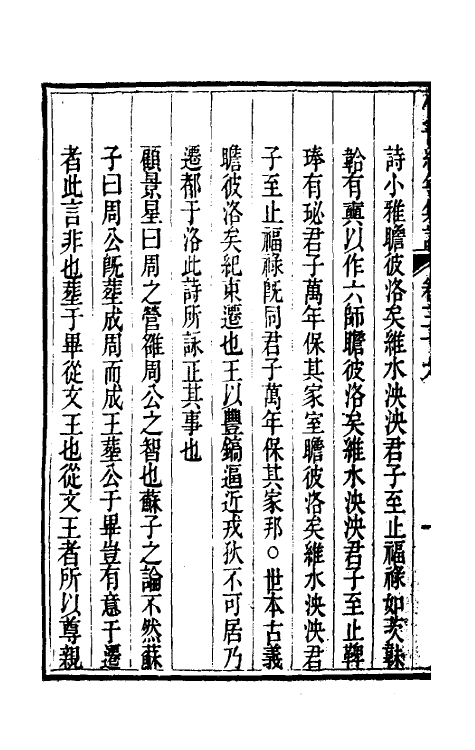 詩小雅瞻彼洛矣維水泱泱君子至止福祿如茨韎
韐有奭以作六師瞻彼洛矣維水泱泱君子至止鞞
琫有珌君子萬年保其家室瞻彼洛矣維水泱泱君
子至止福祿旣同君子萬年保其家邦○世本古義
瞻彼洛矣紀東遷也王以豐鎬逼近戎狄不可居乃
遷都于洛此詩所詠正其事也
顧景星曰周之營雒周公之智也蘇子之論不然蘇
子曰周公旣塟成周而成王塟公于畢豈有意于遷
者此言非也塟于畢從文王也從文王者所以尊親